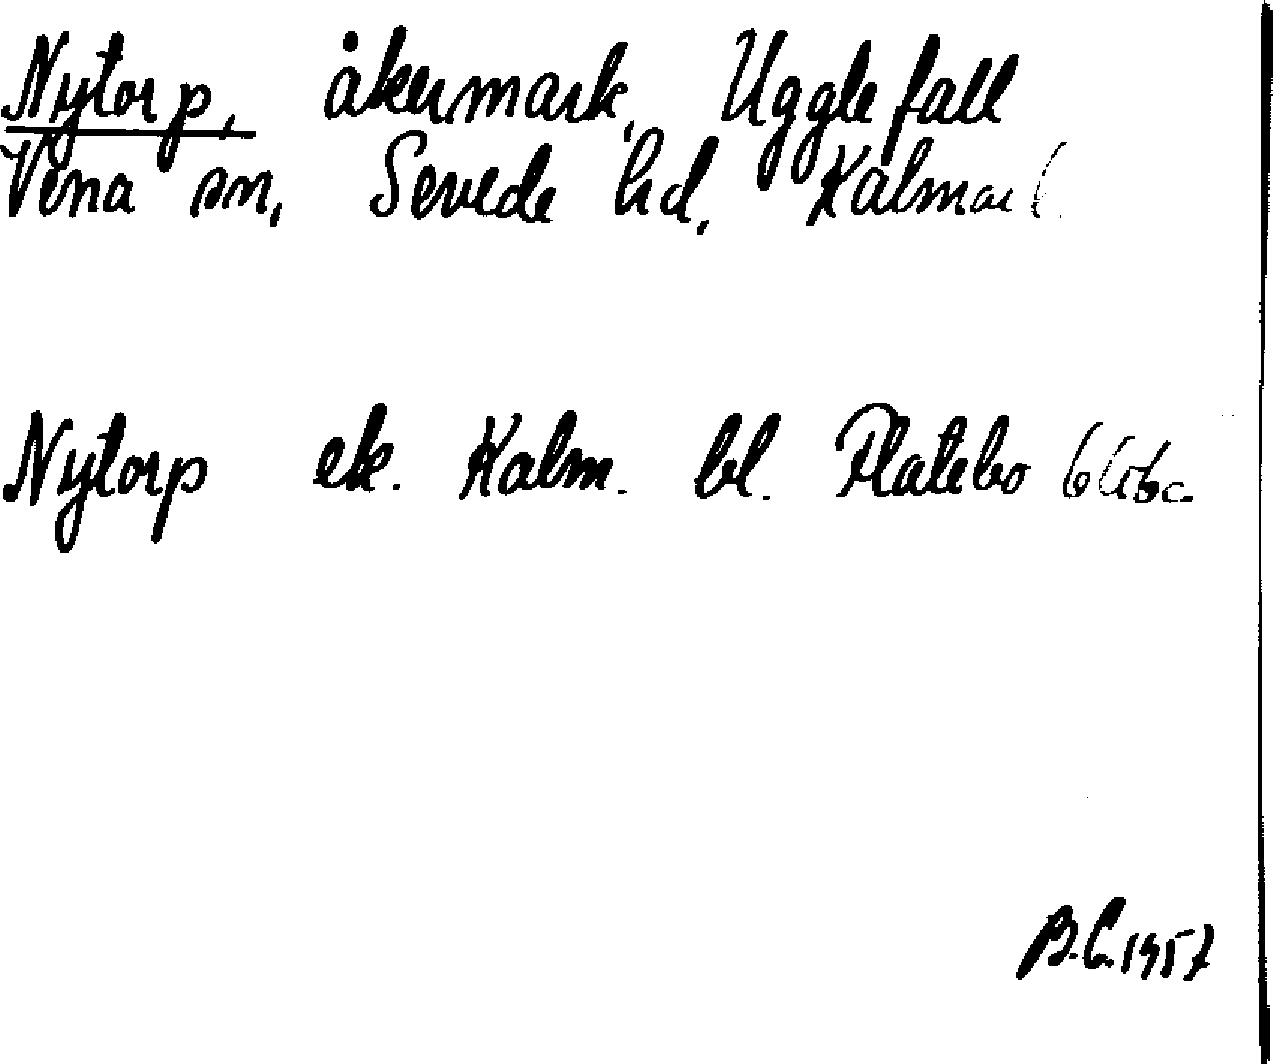 Nytorp, åkermark, Ugglefall
Vena sn, Sevede hd, Kalmar l.
Nytorp ek. Kalm. bl. Flatebo
B.G. 1957